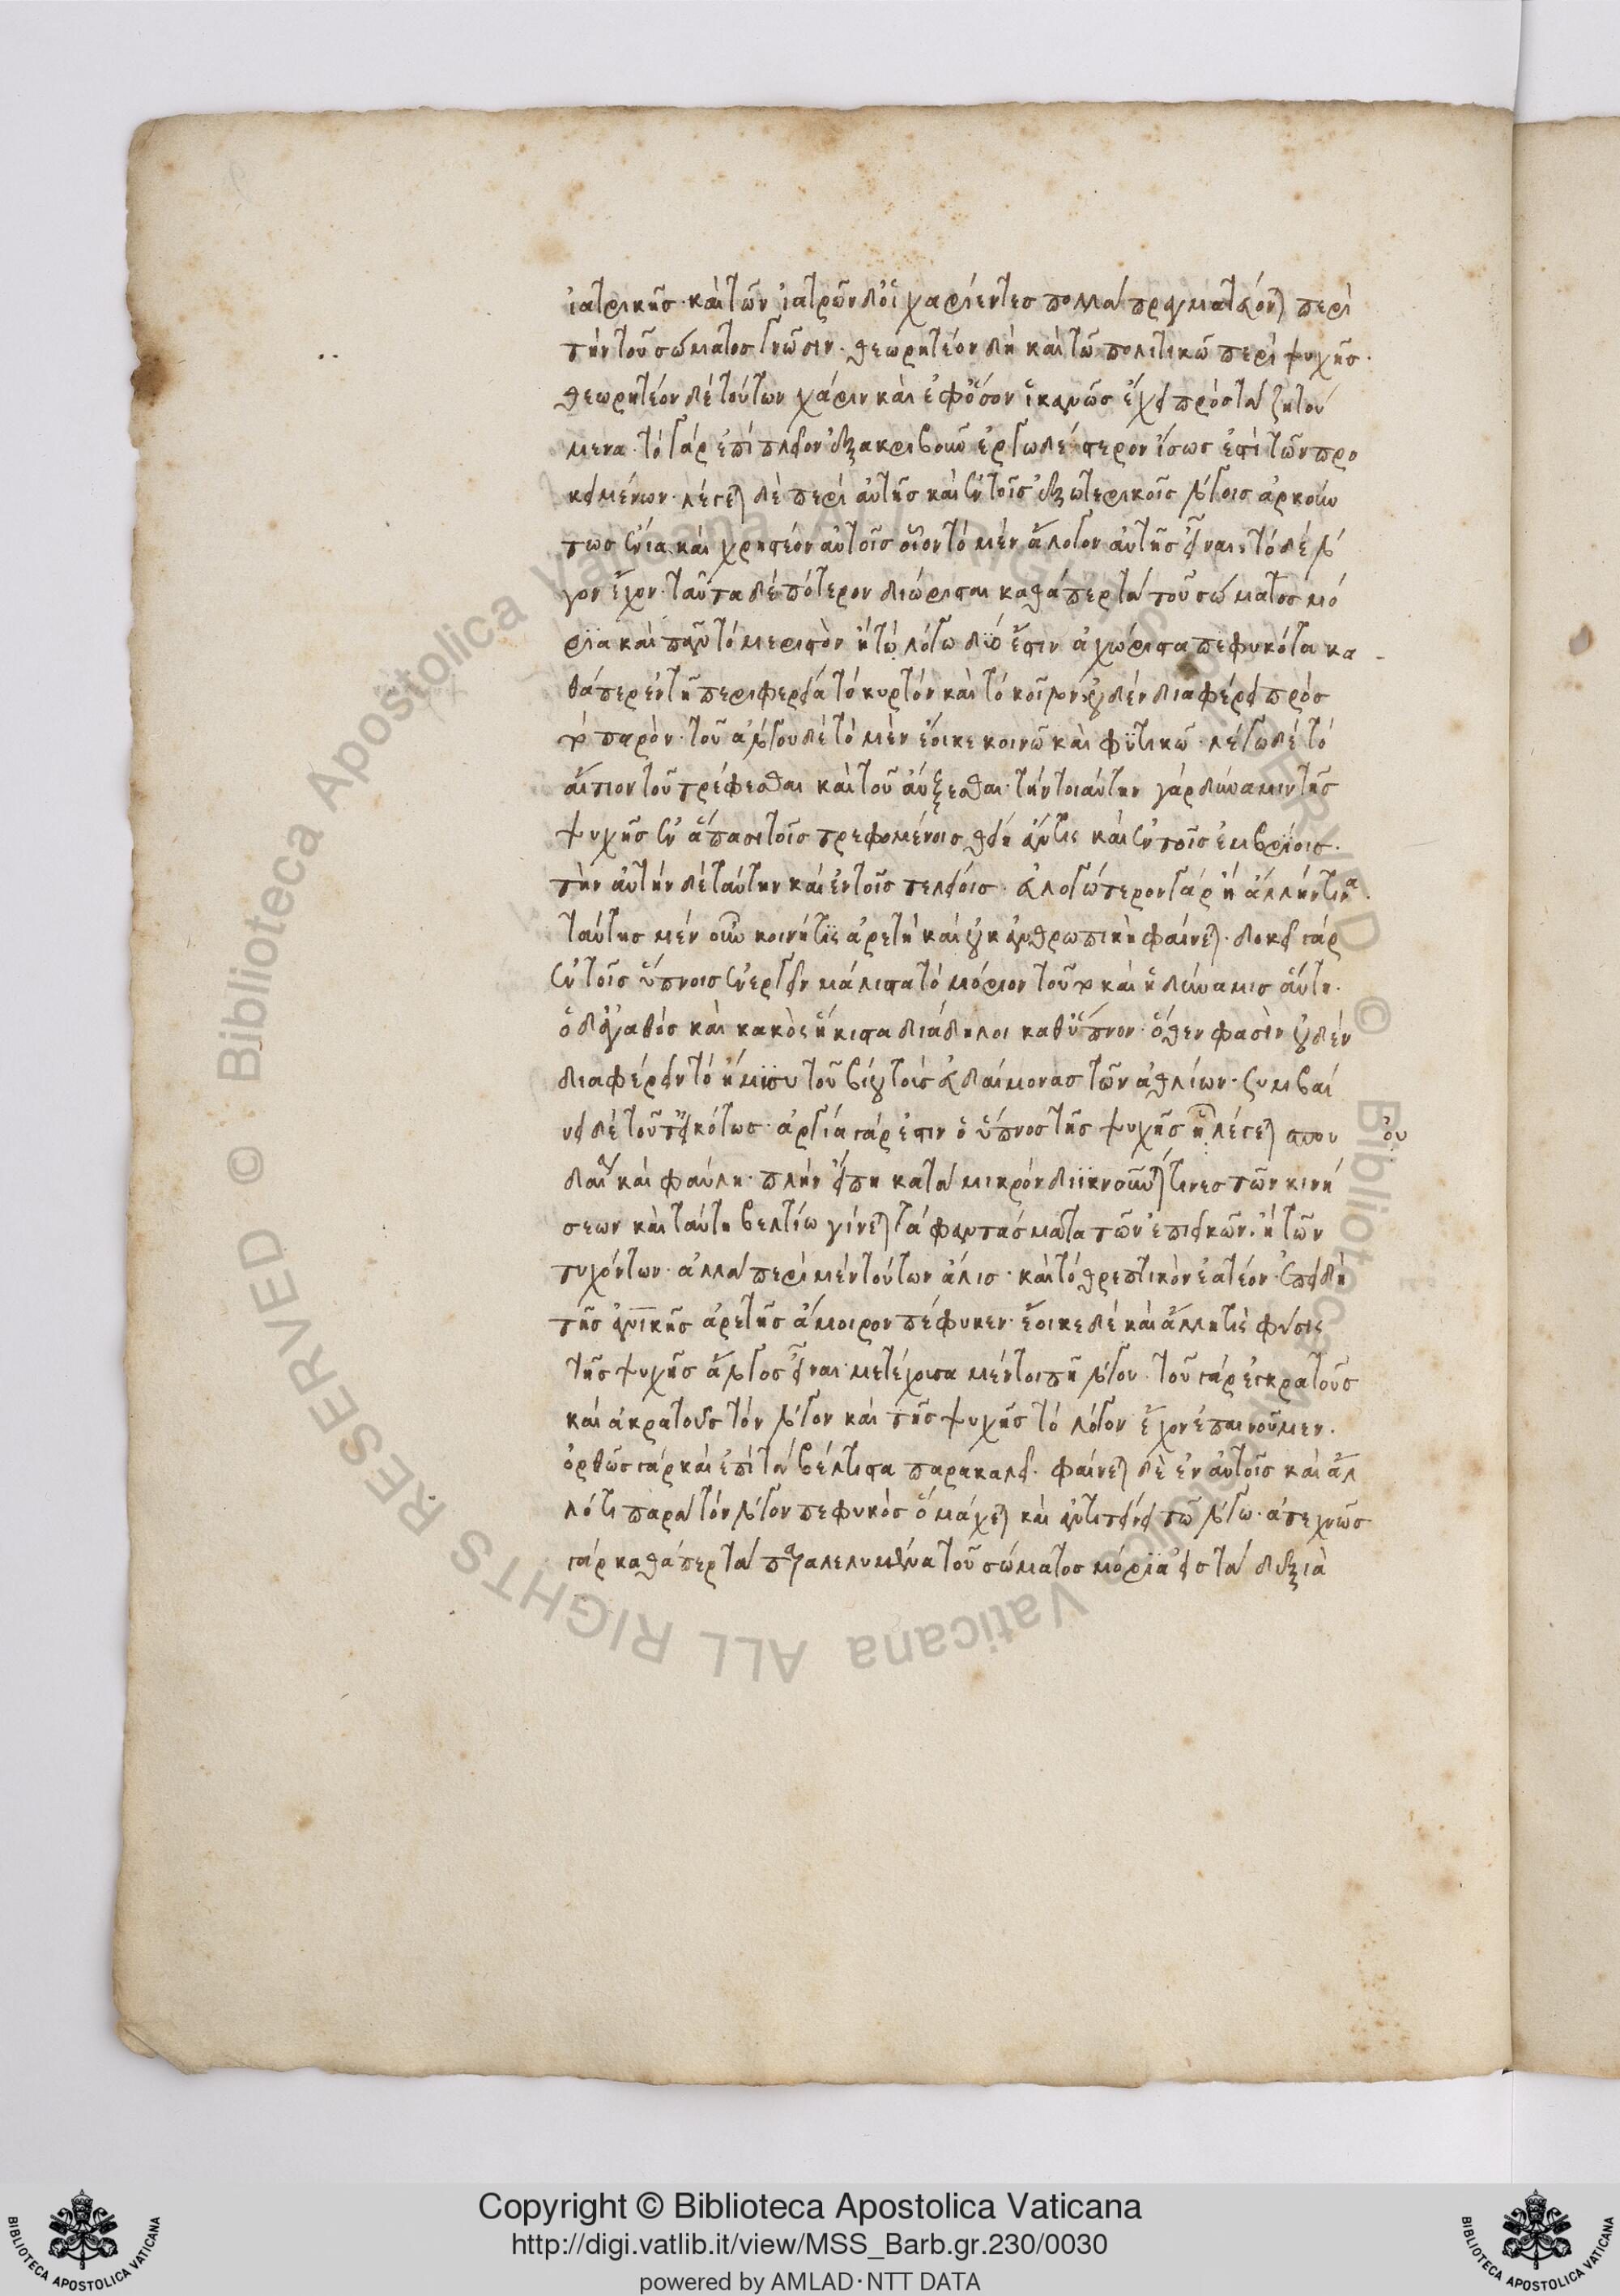 ἰατρικῆσ· καὶ τῶν ἰατρῶν δ' οἱ χαρίεντεσ πολλὰ πραγματεύονται περὶ
τὴν τοῦ σώματοσ γνῶσιν· θεωρητέον δὴ καὶ τῶ πολιτικῶ περὶ ψυχῆσ·
θεωρητέον δὲ τούτων χάριν καὶ ἐφ' ὅσον ἱκανῶσ ἔχει πρὸσ τὰ ζητού
μενα· τὸ γὰρ ἐπὶ πλεῖον ἐξακριβοῦν ἐργωδέστερον ἴσωσ ἐστὶ τῶν προ
κειμένων· λέγεται δὲ περὶ αὐτῆσ καὶ ἐν τοῖσ ἐξωτερικοῖσ λόγοισ ἀρκούν
τωσ ἔνια καὶ χρηστέον αὐτοῖσ οἷον τὸ μὲν ἄλογον αὐτῆσ εἶναι· τὸ δὲ λό
γον ἔχον· ταῦτα δὲ πότερον διώρισται καθάπερ τὰ τοῦ σώματοσ μό
ρϊα καὶ πᾶν τὸ μεριστὸν ἢ τῷ λόγω δύο ἐστὶν ἀχώριστα πεφυκότα κα-
θάπερ ἐν τῆ περιφερεία τὸ κυρτὸν καὶ τὸ κοῖλον οὐδὲν διαφέρει πρὸσ
τὸ παρὸν· τοῦ ἀλόγου δὲ τὸ μὲν ἔοικε κοινῶ καὶ φϋτικῶ· λέγω δὲ τὸ
αἴτιον τοῦ τρέφεσθαι καὶ τοῦ αὔξεσθαι· τὴν τοιαύτην γὰρ δύναμιν τῆσ
ψυχῆσ ἐν ἅπασι τοῖσ τρεφομένοισ θείη ἄν τισ καὶ ἐν τοῖσ ἐμβρύοισ·
τὴν αὐτὴν δὲ ταύτην καὶ ἐν τοῖσ τελείοισ· εὐλογώτερον γὰρ ἢ ἄλλην τινα·
ταύτησ μὲν οὖν κοινή τισ ἀρετὴ καὶ οὐκ ἀνθρωπικὴ φαίνεται· δοκεῖ γὰρ
ἐν τοῖσ ὕπνοισ ἐνεργεῖν μάλιστα τὸ μόριον τοῦτο καὶ ἡ δύναμισ αὕτη·
ὁ δ' ἀγαθὸσ καὶ κακὸσ ἥκιστα διάδηλοι καθ' ὕπνον· ὅθεν φασὶν οὐδὲν
διαφέρειν τὸ ἥμισυ τοῦ βίου τοὺσ εὐδαίμονασ τῶν ἀθλίων· ξυμβαί
νει δὲ τοῦτ' εἰκότωσ· ἀργία γάρ ἐστιν ὁ ὕπνοσ τῆσ ψυχῆσ ἣ λέγεται σπου ὁυ
δαία καὶ φαύλη· πλὴν εἴ πη κατὰ μικρὸν διϊκνοῦνταί τινεσ τῶν κινή
σεων καὶ ταύτη βελτίω γίνεται τὰ φαντάσματα τῶν ἐπιεικῶν· ἢ τῶν
τυχόντων· ἀλλὰ περὶ μὲν τούτων ἅλισ· καὶ τὸ θρεπτικὸν ἐατέον· ἐπειδὴ
τῆσ ἀνικῆσ ἀρετῆσ ἄμοιρον πέφυκεν· ἔοικε δὲ καὶ ἄλλη τισ φύσισ
τῆσ ψυχῆσ ἄλογοσ εἶναι· μετέχουσα μέντοι πη λόγου· τοῦ γὰρ ἐγκρατοῦσ
καὶ ἀκρατοῦσ τὸν λόγον καὶ τῆσ ψυχῆσ τὸ λόγον ἔχον ἐπαινοῦμεν·
ὀρθῶσ γὰρ καὶ ἐπὶ τὰ βέλτιστα παρακαλεῖ· φαίνεται δὲ ἐν αὐτοῖσ καὶ ἄλ
λό τι παρὰ τὸν λόγον πεφυκὸσ ὃ μάχεται καὶ ἀντιτείνει τῶ λόγω· ἀτεχνῶσ
γὰρ καθάπερ τὰ παραλελυμένα τοῦ σώματοσ μόρια εἰσ τὰ δεξιὰ
Copyright © Biblioteca Apostolica Vaticana
http://digi.vatlib.it/view/MSS_Barb.gr.230/0030
powered by AMLAD·NTT DATA